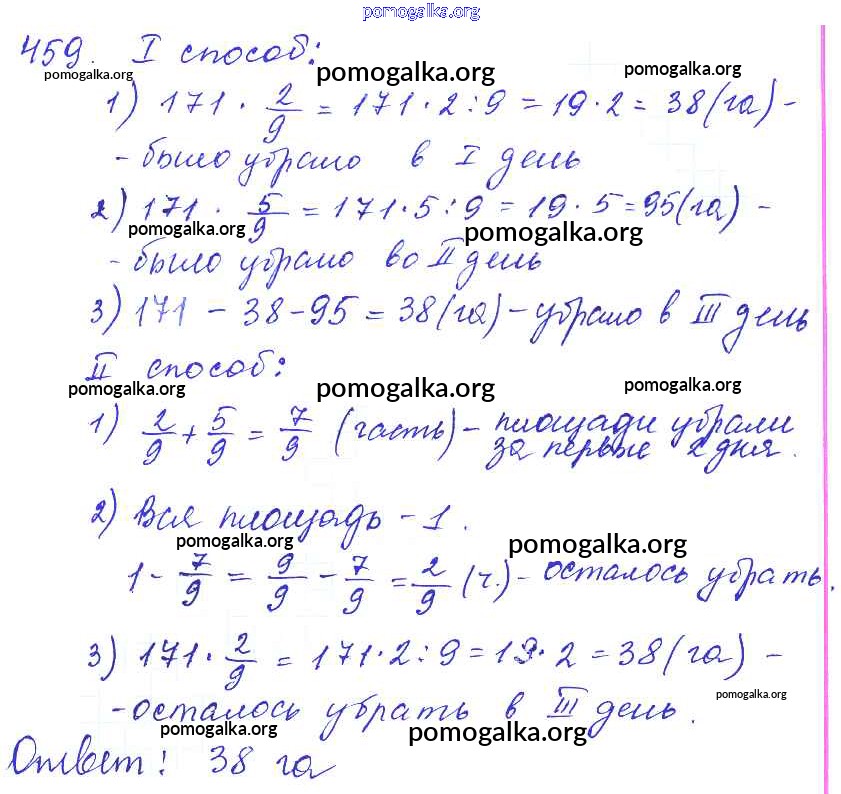 pomogalka.org
459. I способ:
pomogalka.org pomogalka.org pomogalka.org
1) 171 · 2/9 = 171 · 2 : 9 = 19 · 2 = 38 (га) -
- было убрано в I день
2) 171 · 5/9 = 171 · 5 : 9 = 19 · 5 = 95 (га) -
pomogalka.org pomogalka.org
- было убрано во II день
3) 171 - 38 - 95 = 38 (га) - убрано в III день
II способ:
pomogalka.org pomogalka.org pomogalka.org
1) 2/9 + 5/9 = 7/9 (часть) - площади убрали
за первые 2 дня.
2) Вся площадь - 1.
pomogalka.org pomogalka.org
1 - 7/9 = 9/9 - 7/9 = 2/9 (ч.) - осталось убрать.
3) 171 · 2/9 = 171 · 2 : 9 = 19 · 2 = 38 (га) -
pomogalka.org
- осталось убрать в III день.
pomogalka.org pomogalka.org
Ответ: 38 га